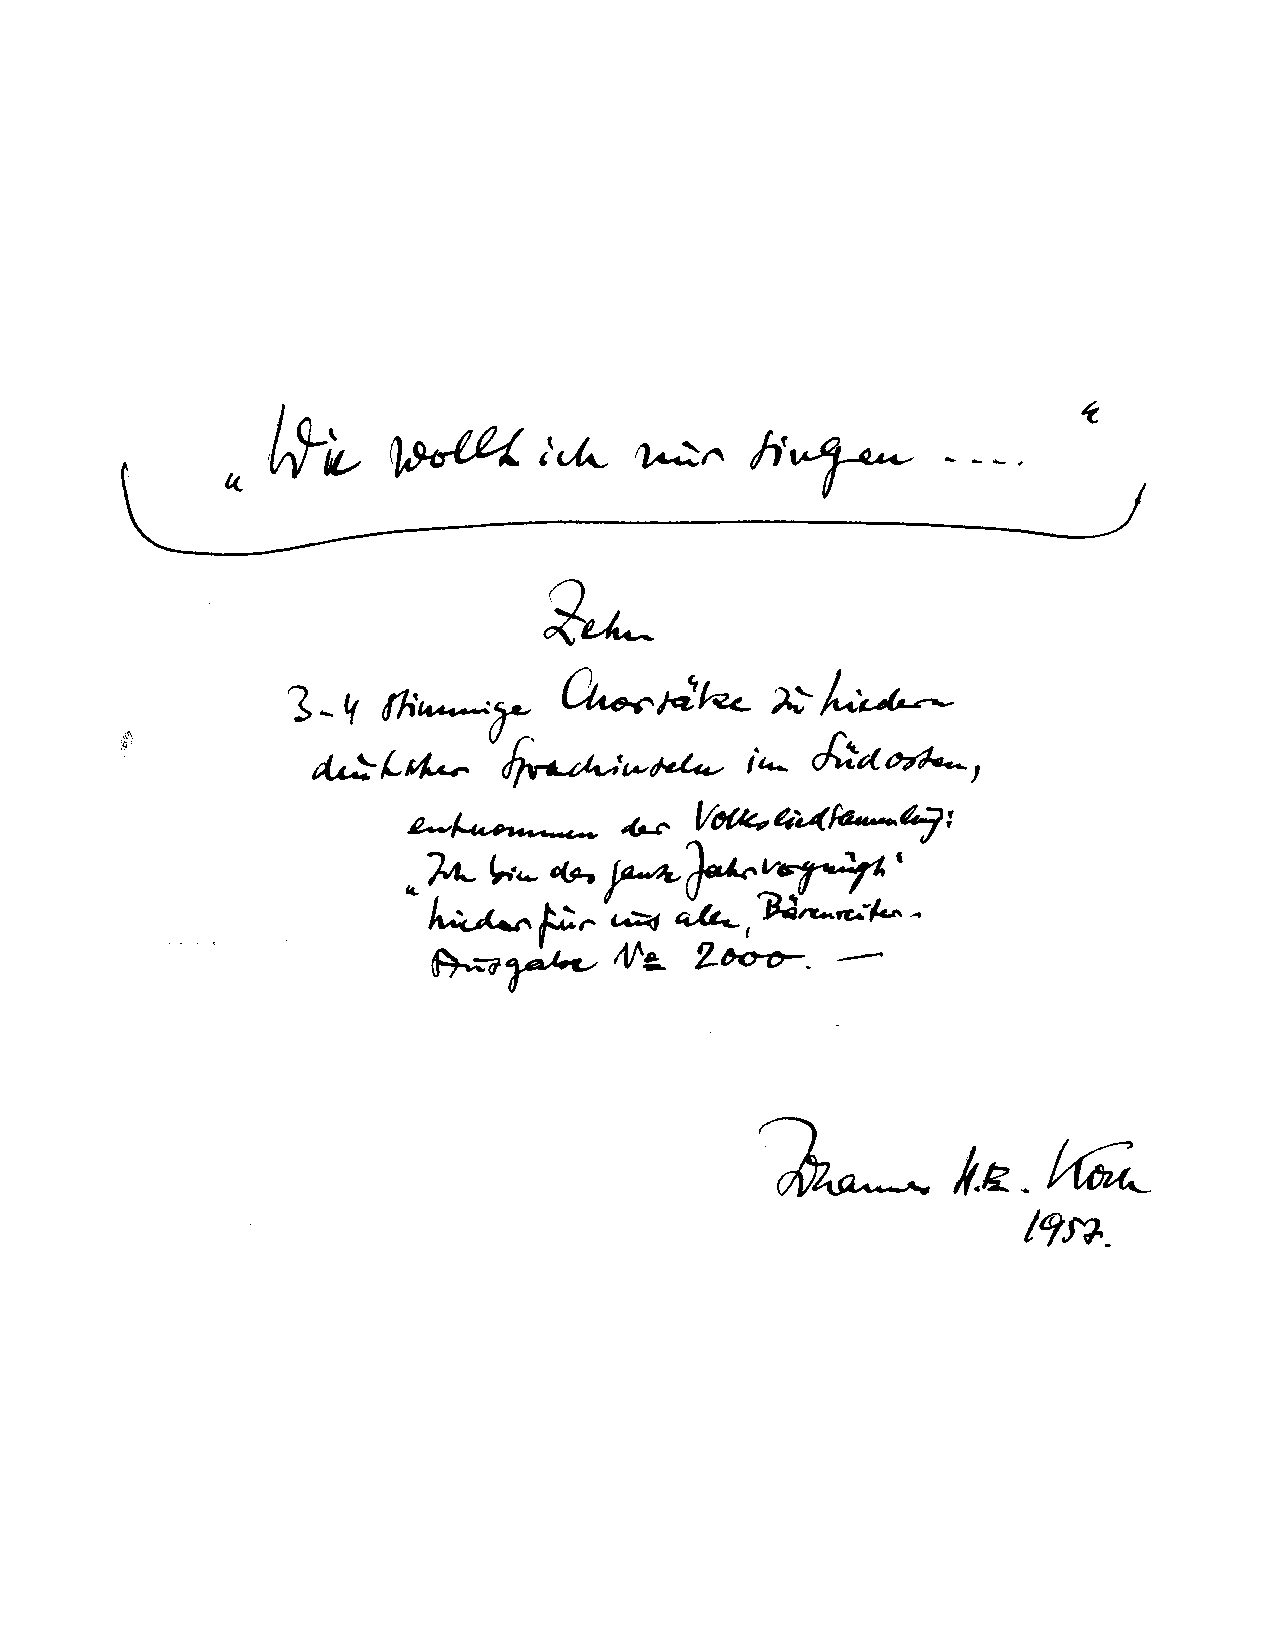 „Wir wollt ich nur singen ...."
Zehn
3-4 stimmige Chorsätze zu Liedern
deutscher Sprachinseln im Südosten,
entnommen der Volksliedsammlung:
„Ich bin das ganze Jahr vergnügt"
Lieder für uns alle, Bärenreiter-
Ausgabe No 2000. —
Johannes H.E. Koch
1957.